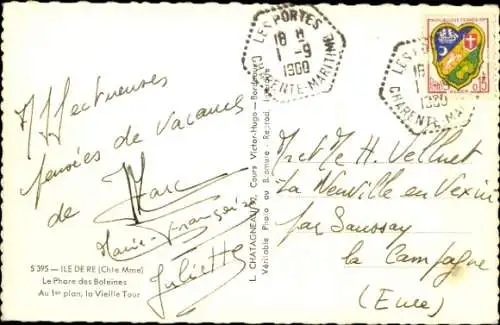 Affectueuses
pensées de vacances
de Marc
Marie-Françoise
Juliette
S 395 - ILE DE RE (Chte Mme)
Le Phare des Baleines
Au 1er plan, la Vieille Tour
L. CHATAGNEAU, 92, Cours Victor-Hugo - Bordeaux
Véritable Photo au Bromure - Reprod. 
LES PORTES
18 H
1 -9
1960
CHARENTE-MARITIME
LES PO
18
1
1960
CHARENTE-MA
REPUBLIQUE FRANÇAISE
0,15
M et Me H. Velluet
La Neuville en Vexin
par Saussay
la Campagne
(Eure)